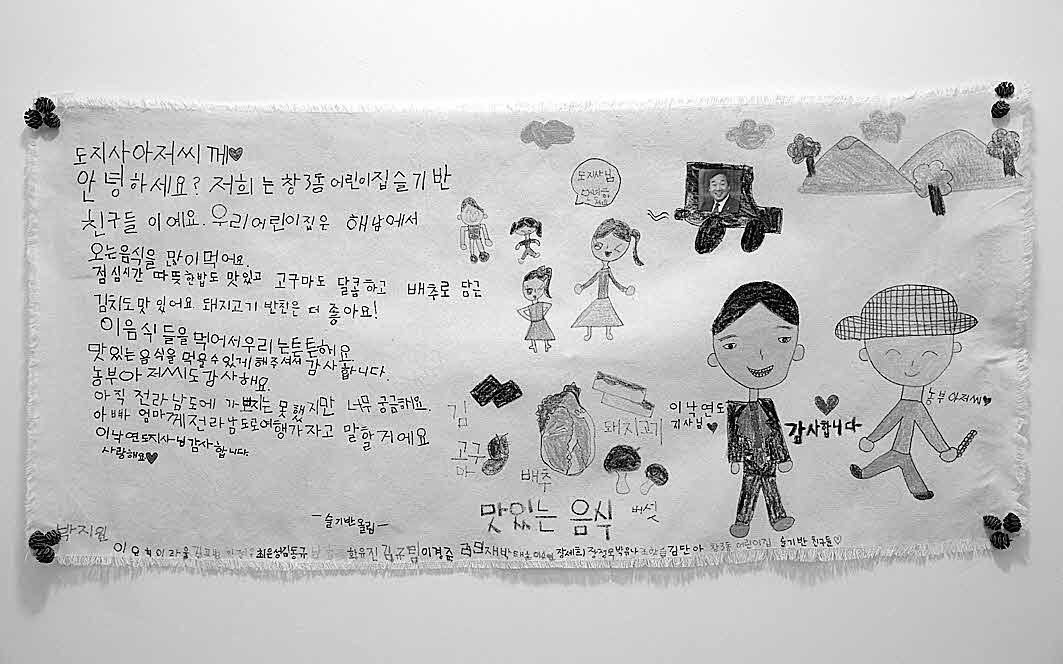 도지사아저씨께♥
안녕하세요? 저희는 창3동 어린이집 슬기반
친구들이예요. 우리어린이집은 해남에서
오는음식을 많이먹어요.
점심시간 따뜻한밥도 맛있고 고구마도 달콤하고 배추로 담근
김치도 맛있어요 돼지고기 반찬은 더 좋아요!
이음식들을먹어서우리는튼튼해요.
맛있는 음식을 먹을수있게 해주셔서 감사합니다.
농부아저씨도감사해요.
아직 전라남도에 가보지는 못했지만 너무 궁금해요.
아빠 엄마께전라남도로여행가자고 말할거에요
이낙연도지사님 감사합니다.
사랑해요♥
-슬기반올림-
도지사님
김
고구마
배추
돼지고기
버섯
맛있는 음식
이낙연도
지사님♥
감사합니다
농부아저씨♥
박지원
최은성김동규
한유진
이경준
장세희
김단아 창3동 어린이집 슬기반 친구들♡